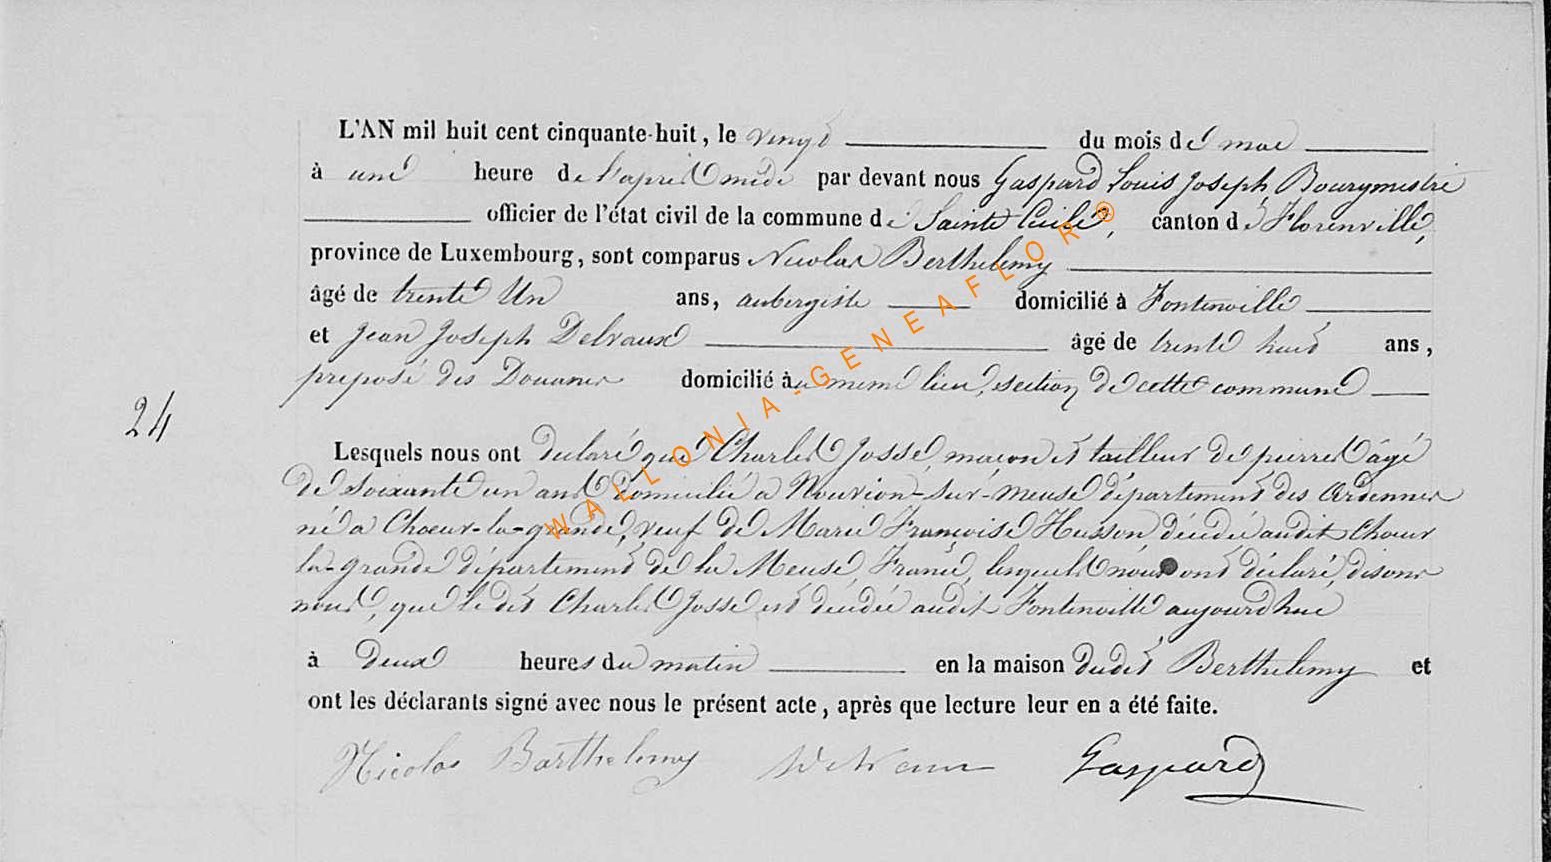 L'AN mil huit cent cinquante-huit, le vingt du mois de mai
à une heure de l'après midi par devant nous Gaspard Louis Joseph, Bourgmestre
officier de l'état civil de la commune de Sainte Cécile, canton de Florenville,
province de Luxembourg, sont comparus Nicolas Berthelemy
âgé de trente Un ans, aubergiste domicilié à Fontenoille
et Jean Joseph Delvaux âgé de trente huit ans,
préposé des Douanes domicilié àu meme lieu, section de cette commune
24
Lesquels nous ont declaré que Charles Josse, maçon et tailleur de pierres âgé
de soixante un ans domicilié a Nouvion-sur-meuse département des Ardennes
né a Choeur-la-grande, veuf de Marie Françoise Husson décédée audit Choeur
la-grande département de la Meuse, France, lesquels nous ont déclaré, disons
nous, que le dit Charles Josse est décédé audit Fontenoille aujourdhui
à deux heures du matin en la maison dudit Berthelemy et
ont les déclarants signé avec nous le présent acte, après que lecture leur en a été faite.
Nicolas Barthelemy Gaspard
WALLONIA-GENEAFLOR®